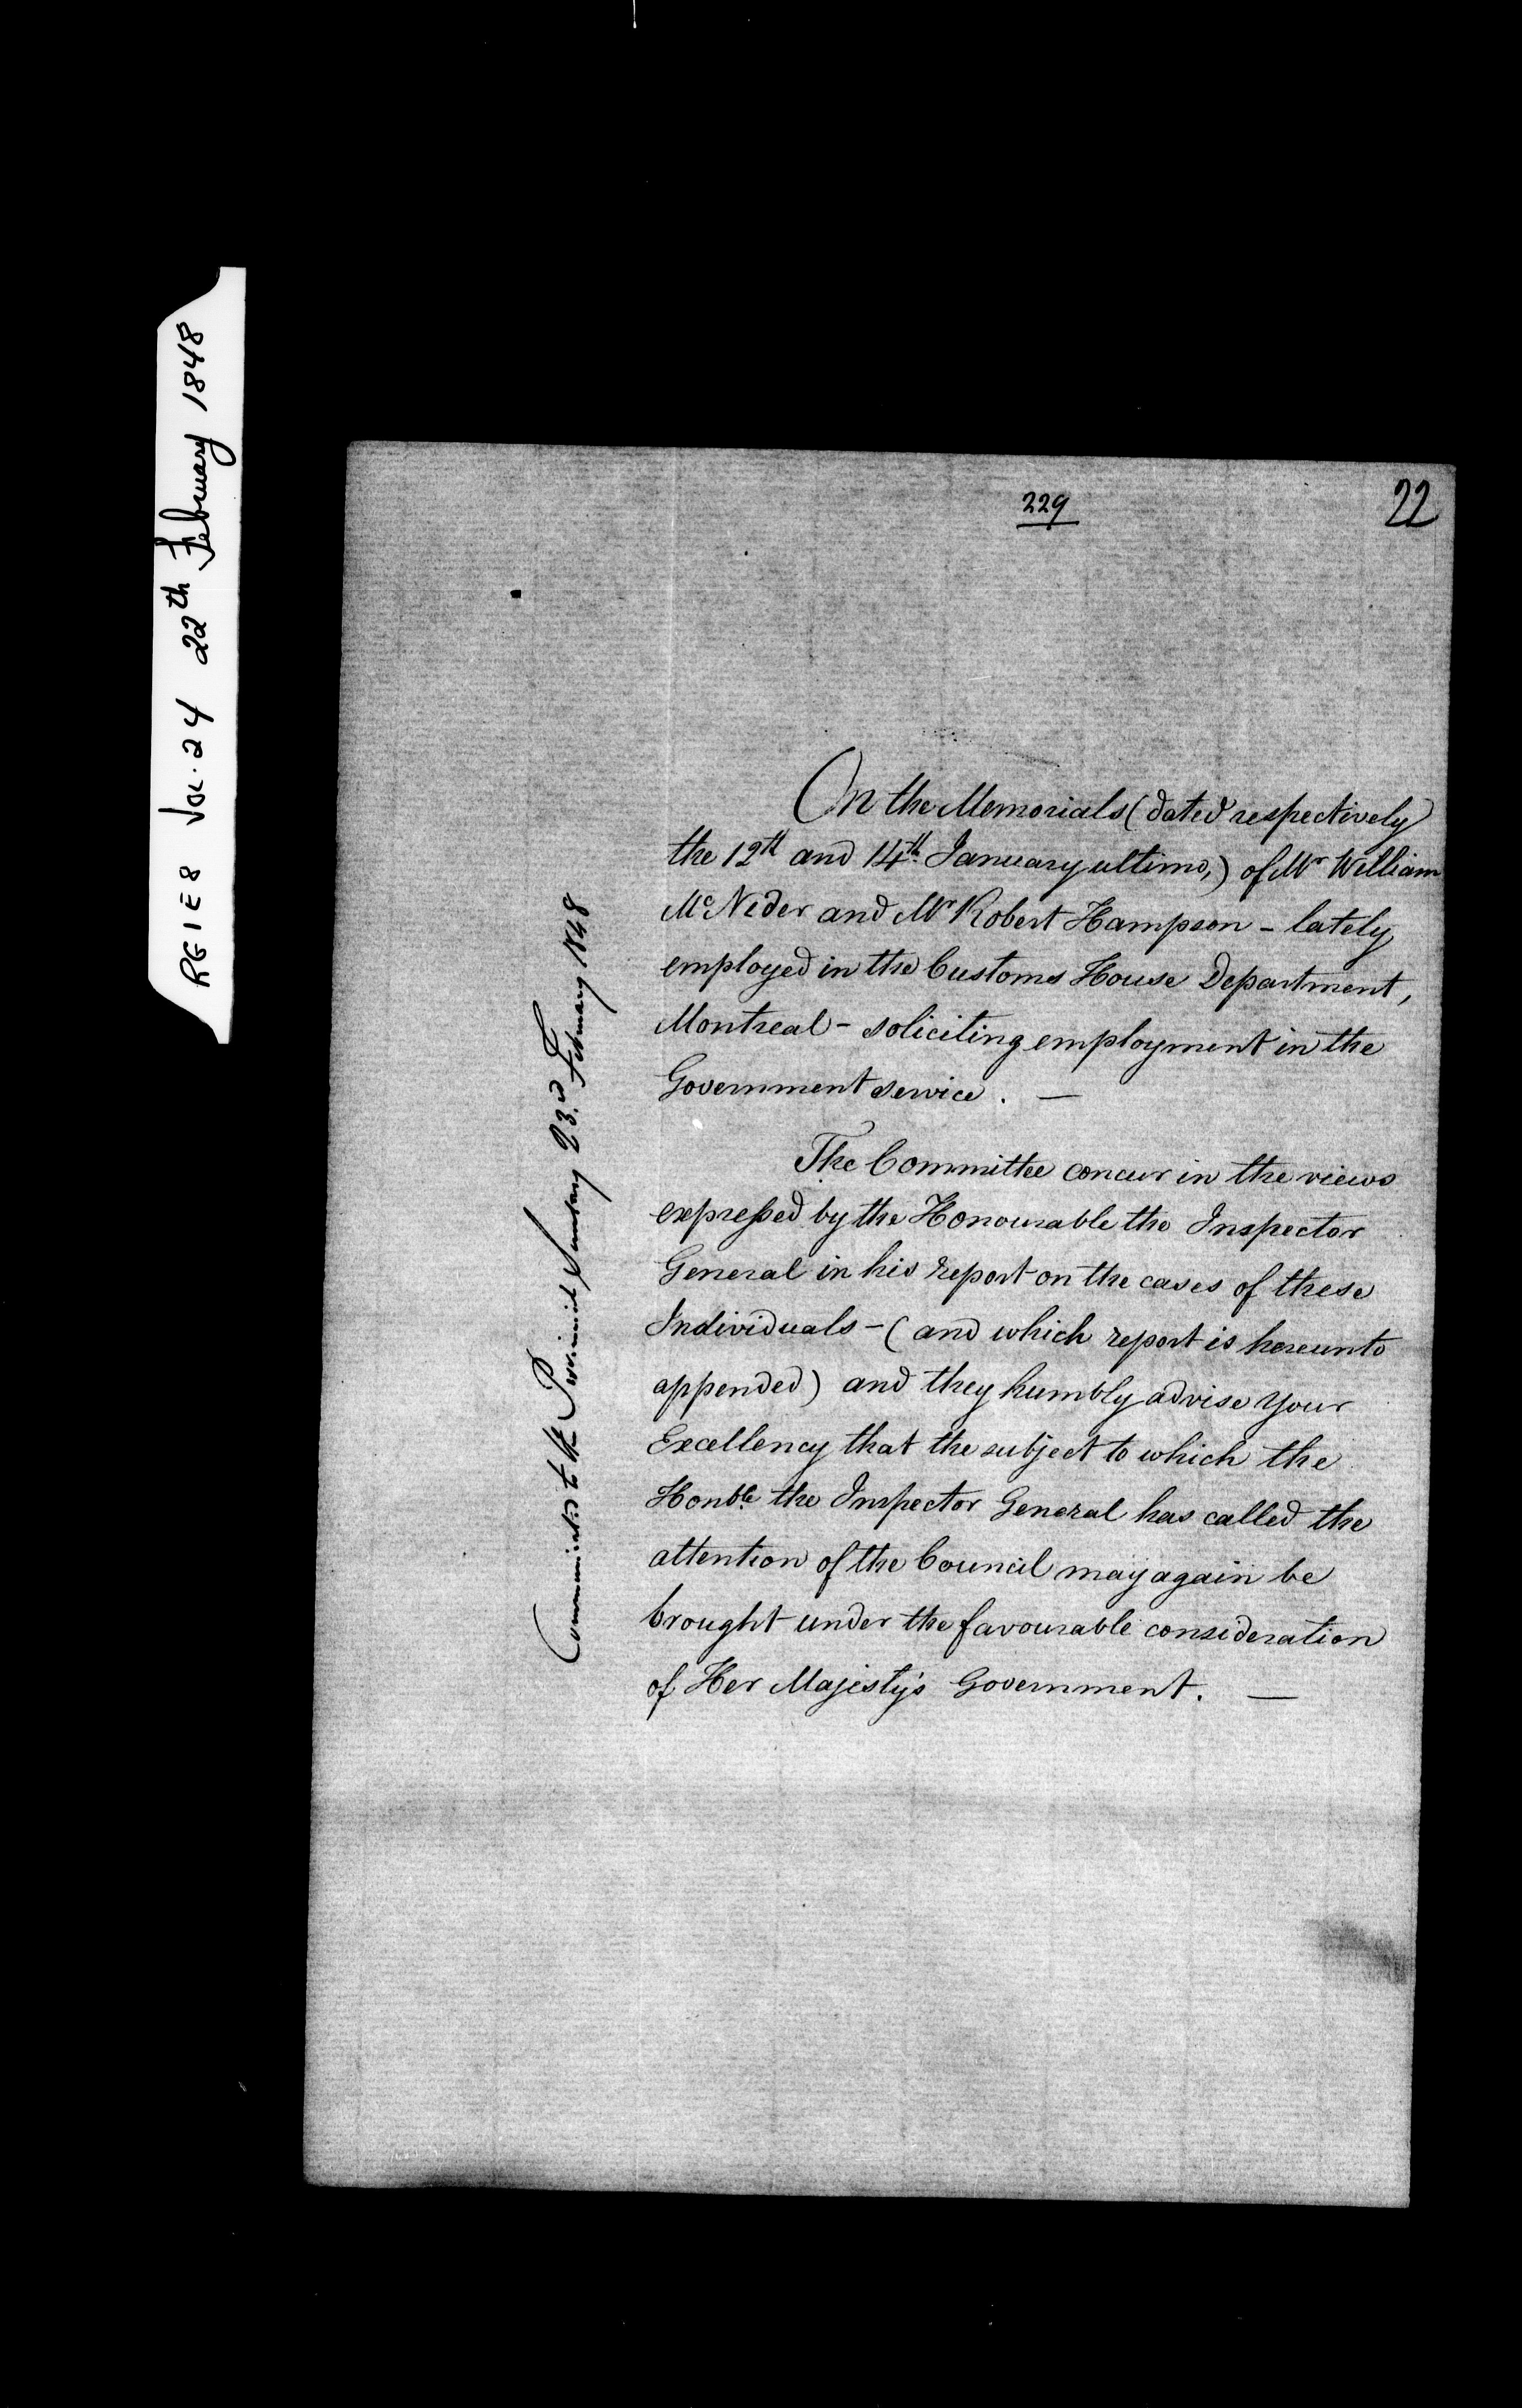 RG1E8 Vol. 24 22th February 1848
229
22
On the Memorials (dated respectively
the 12th and 14th January ultimo,) of Mr William
McNider and Mr Robert Hampson - lately
employed in the Customs House Department,
Montreal - soliciting employment in the
Government service. —
The Committee concur in the views
expressed by the Honourable the Inspector
General in his report on the cases of these
Individuals - (and which report is hereunto
appended) and they humbly advise Your
Excellency that the subject to which the
Honble the Inspector General has called the
attention of the Council may again be
brought under the favourable consideration
of Her Majesty's Government. —
Communicated to the Provincial Secretary 23rd February 1848